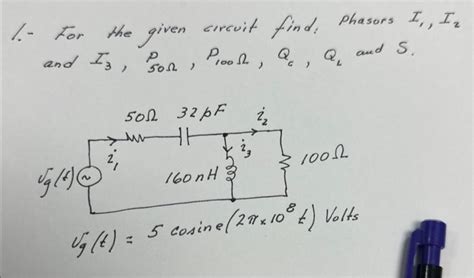 1.- For the given circuit find: Phasors I₁, I₂
and I₃, P50Ω, P100Ω, Qc, QL and S.
50Ω 32pF i₂
i₁ i₃ 100Ω
vg(t) ~ 160nH
vg(t) = 5 cosine(2π×10⁸t) Volts